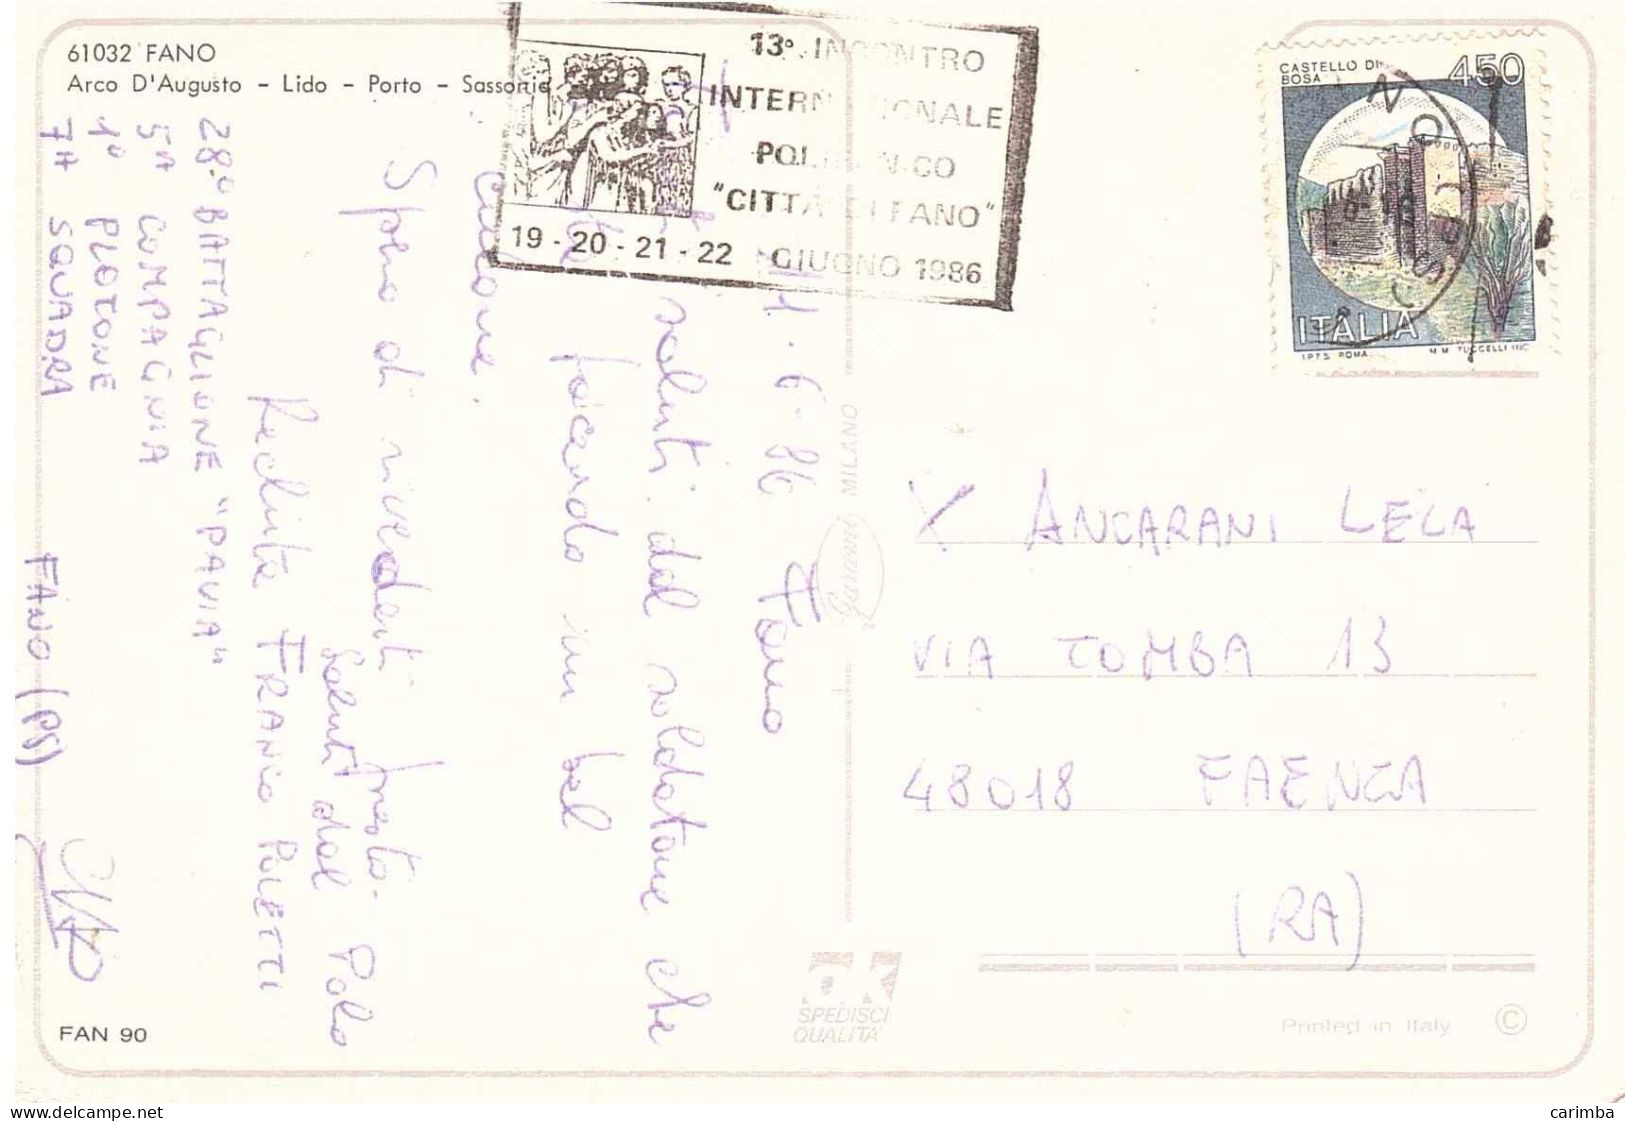 61032 FANO
Arco D'Augusto - Lido - Porto - Sassonia
13° INCONTRO
INTERNAZIONALE
POLIFONICO
"CITTA' DI FANO"
19 - 20 - 21 - 22 GIUGNO 1986
CASTELLO DI
BOSA
450
ITALIA
I.P.T.S. ROMA M.M. TUCCELLI INC.
6-86 Fano
saluti dal soldatone che
facendo un bel
Spero di rivederti presto.
Saluti dal Polo
Recluta FRANCO POLETTI
28° BATTAGLIONE "PAVIA"
5A COMPAGNIA
1° PLOTONE
7A SQUADRA
FANO (PS)
X ANCARANI LELA
VIA TOMBA 13
48018 FAENZA
(RA)
MILANO
Garami
SPEDISCI
QUALITÀ
FAN 90
Printed in Italy ©
carimba